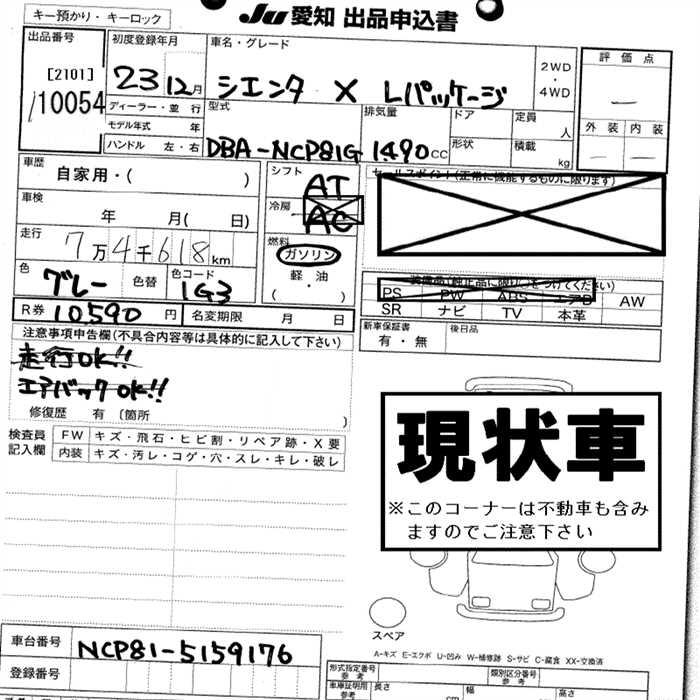 キー預かり・キーロック
JU 愛知 出品申込書
出品番号
[2101]
10054
初度登録年月
23 12月
ディーラー・並 行
モデル年式 年
ハンドル 左・右
車名・グレード
シエンタ X Lパッケージ
2WD
・
4WD
型式
DBA-NCP81G
排気量
1490cc
ドア
形状
定員
人
積載
kg
評価点
外装 内装
車歴
自家用・( )
車検
年 月( 日)
走行
7万4千618km
色
グレー
色替
色コード
1G3
シフト
AT
冷房
AC
燃料
ガソリン
軽・油
( ・ )
セールスポイント(正常に機能するものに限ります)
装備品(純正品に限り○をつけてください)
PS PW ABS エアB AW
SR ナビ TV 本革
新車保証書
有・無
後日品
R券 10,590 円
名変期限 月 日
注意事項申告欄(不具合内容等は具体的に記入して下さい)
走行OK!!
エアバックOK!!
修復歴 有 〔箇所 〕
検査員
記入欄
FW キズ・飛石・ヒビ割・リペア跡・X要
内装 キズ・汚レ・コゲ・穴・スレ・キレ・破レ
現状車
※このコーナーは不動車も含み
ますのでご注意下さい
スペア
A-キズ E-エクボ U-凹み W-補修跡 S-サビ C-腐食 XX-交換済
車台番号 NCP81-5159176
登録番号
形式指定番号
参考
類別区分番号
参考
車庫証明用
参考
長さ
cm
幅
高さ